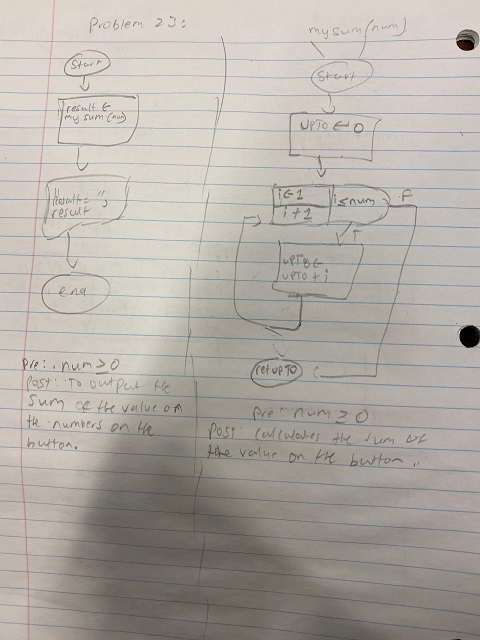 Problem 23:
Start
result ←
mysum(num)
"Result = ",
result
end
pre: num ≥ 0
post: To output the
sum of the value on
the numbers on the
button.
mysum(num)
Start
UPTO ← 0
i ← 1
i + 1
i ≤ num
F
T
UPTO ←
UPTO + i
ret upTo
pre: num ≥ 0
post: calculates the sum of
the value on the button.